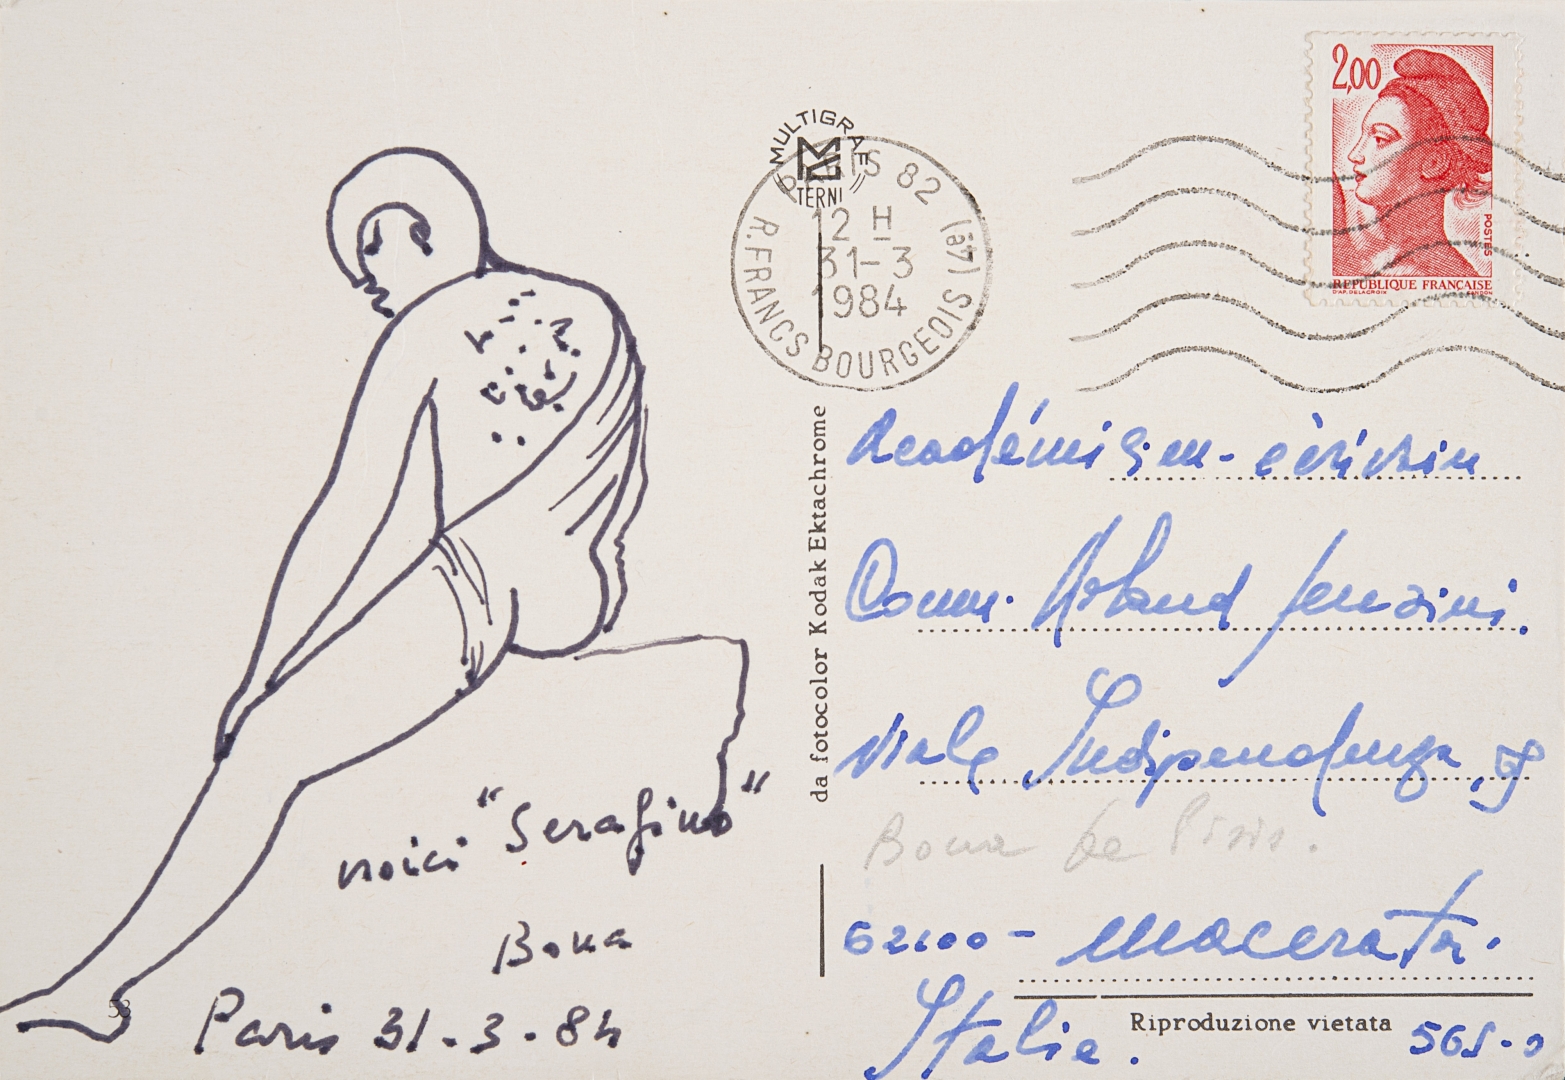 voici "Serafino"
Bona
Paris 31-3-84
53
MULTIGRAF
TERNI
PARIS 82 (4e)
12 H
31-3
1984
R. FRANCS BOURGEOIS
da fotocolor Kodak Ektachrome
2,00
POSTES
REPUBLIQUE FRANÇAISE
D'AP. DELACROIX GANDON
Académicien - écrivain
Comm. Arland
Viale Indipendenza,
Bona de Pisis.
62100 - Macerata.
Italie.
Riproduzione vietata